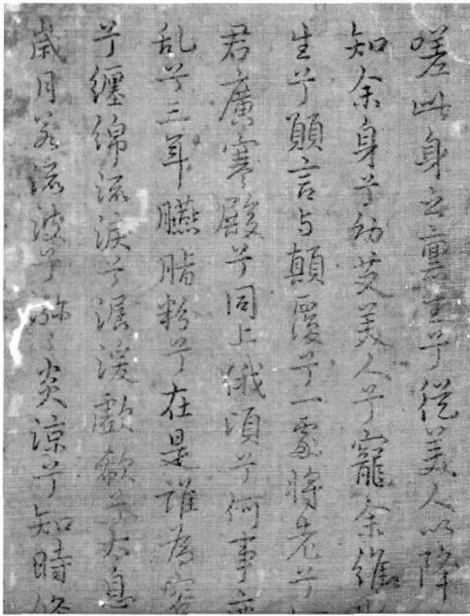 嗟此身之禀生兮從美人以降
知余身兮幼艾美人兮寵余維
生兮願言与顛覆兮一處將老兮
君廣寒殿兮同上俄頃兮何事
乱兮三年臙脂粉兮在是誰為容
兮纏綿流淚兮潺湲歔欷兮太息
歲月若流波兮弥々炎凉兮知時